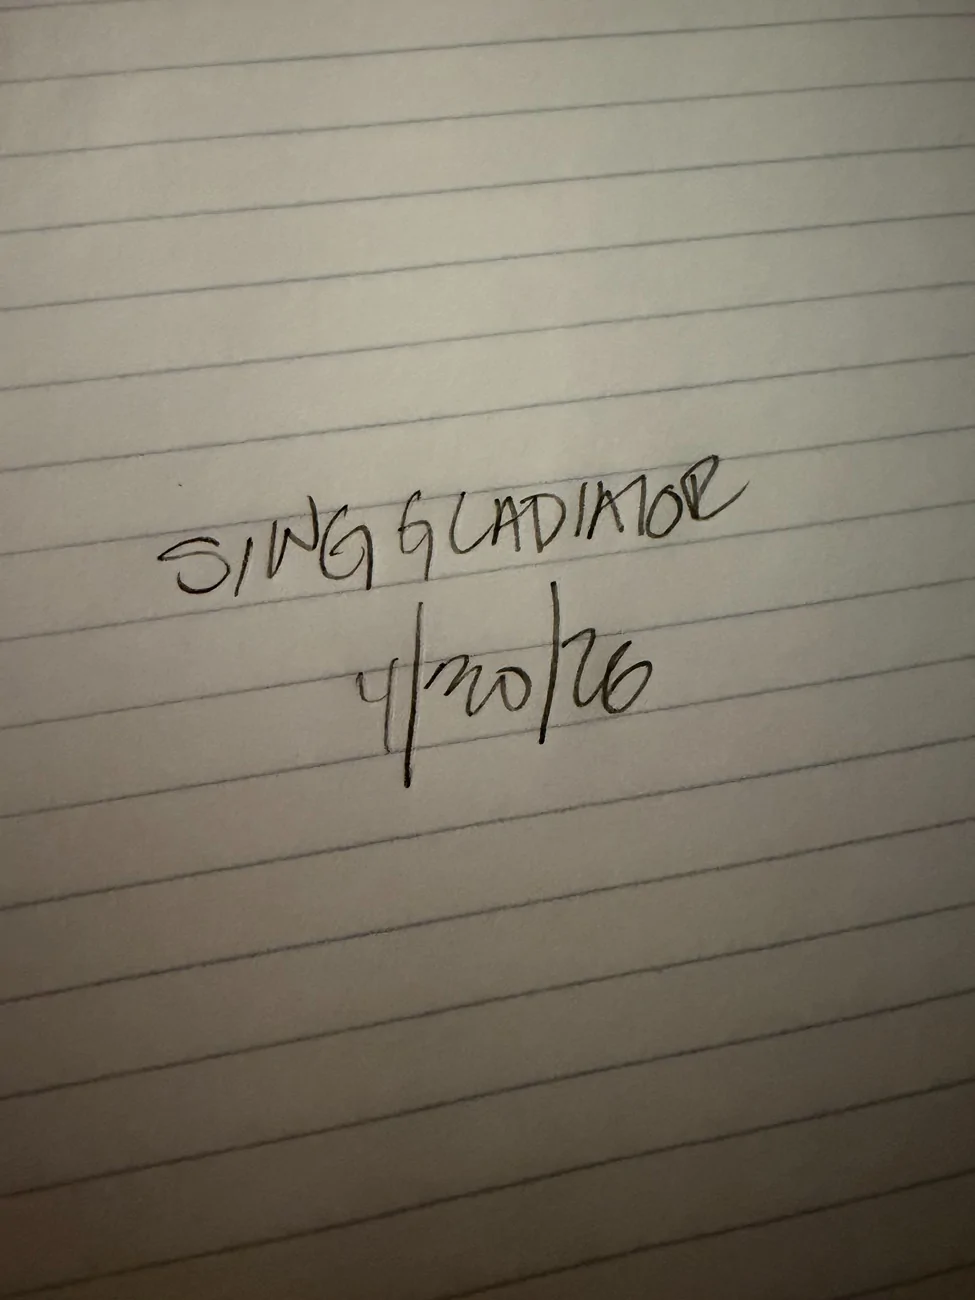 SING GLADIATOR
4/20/26